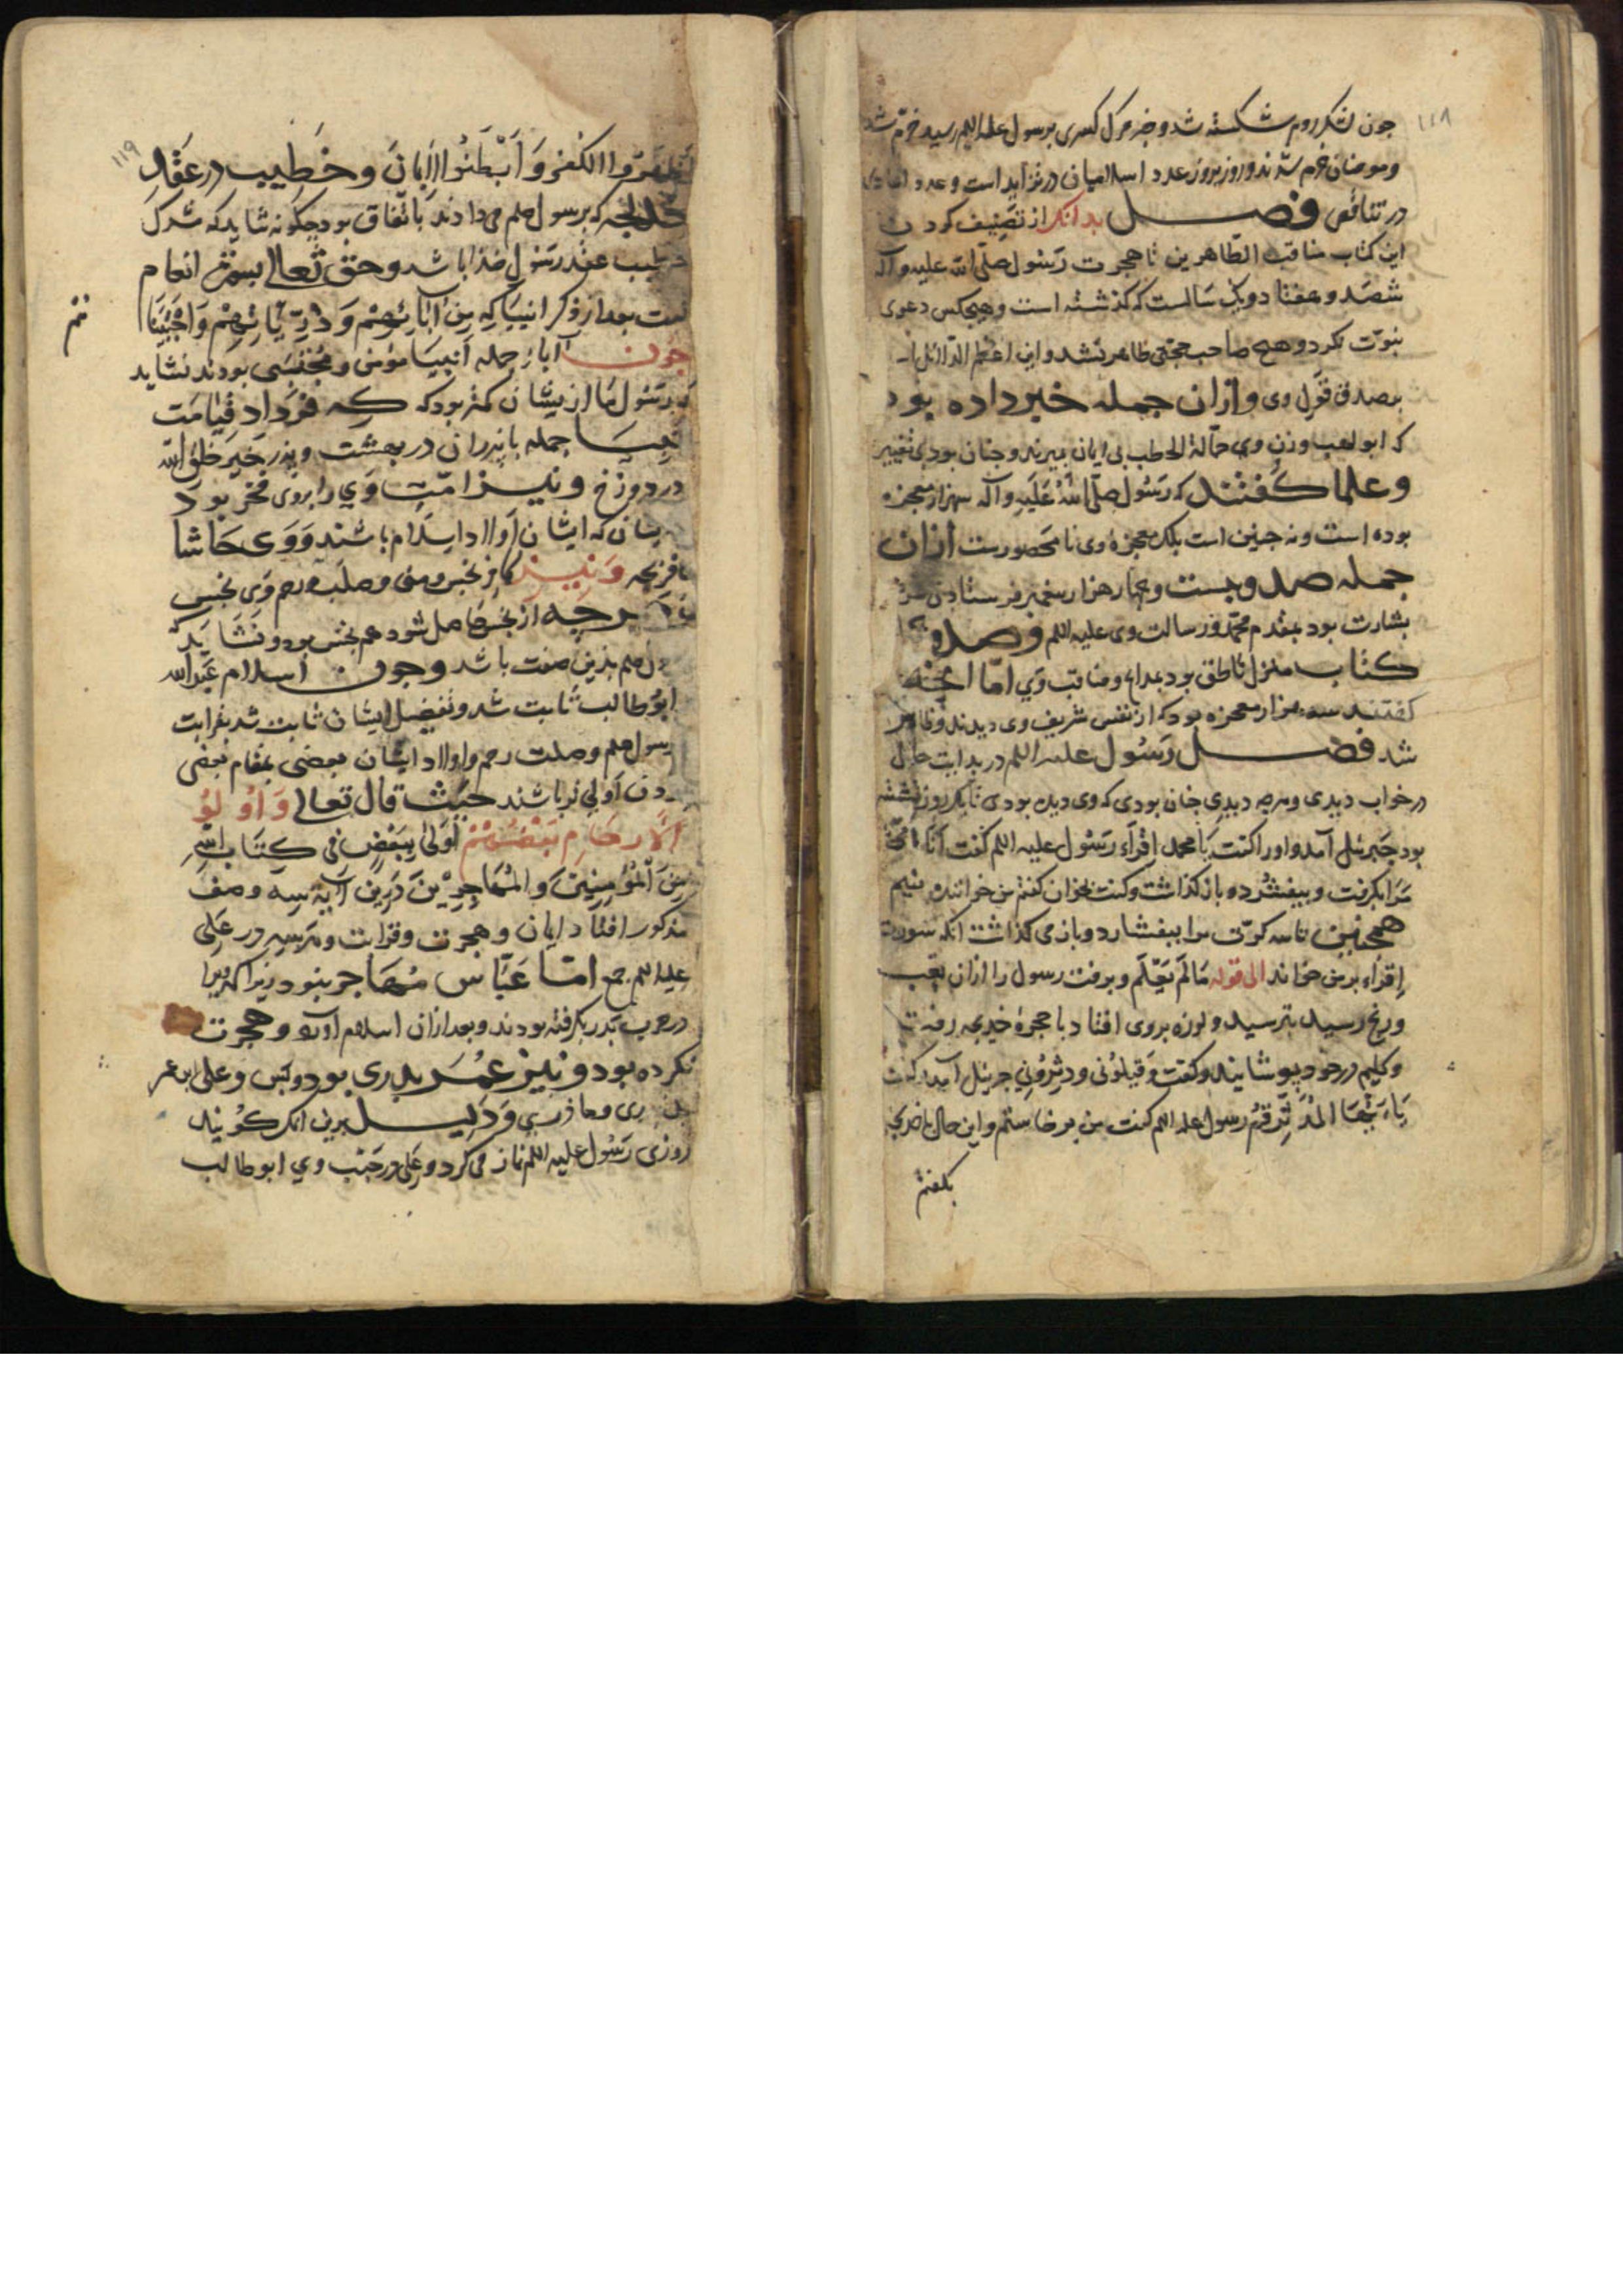 ۱۱۸
جون لشکر روم شکسته شد و خبر مرک کسری برسول علیه اللم رسید خرم شد
و مومنان خرم شدند و روز بروز عدد اسلامیان در تزاید است و عدد
در تناقص فصل بدانک از تصنیف کردن
این کتاب مناقب الطاهرین تا هجرت رسول صلی الله علیه وآله
ششصد و هفتاد و یک سالست که کذشته است و هیجکس دعوی
نبوت نکرد و هیچ صاحب حجتی ظاهر نشد و این اعظم الدلائل است
بصدق قول وی و ازان جمله خبر داده بود
که ابو لهب و زن وی حمالة الحطب بی ایمان بمیرند و جنان بود بی تغییر
و علما کفتند که رسول صلی الله علیه وآله سهزار معجزه
بوده است و نه جنین است بلکه معجزهٔ وی نا محصورست ازان
جمله صد و بیست و جهار هزار پیغمبر فرستادن
بشارت بود بمقدم محمد و رسالت وی علیه اللم و صد و
کتاب منزل ناطق بود بمدایح و مناقب وی اما انجه
کفتند سه هزار معجزه بود که از نفس شریف وی دیدند و ظاهر
شد فصل رسول علیه اللم در بدایت حال
در خواب دیدی و هرجه دیدی جنان بودی که وی دیده بودی تا یکروز نشسته
بود جبرئیل آمد و او را کفت یا محمد اقراء رسول علیه اللم کفت انا امی
مرا بکرفت و بیفشرد و باز کذاشت و کفت بخوان کفتم من خواننده نیم
همجنین تا سه کرت مرا بیفشارد و باز می کذاشت انکه سورت
اقراء برمن خواند الی قوله مالم یعلم و برفت رسول را ازان تعب
و رنج رسید بترسید و لرزه بروی افتاد با حجرهٔ خدیجه رفت
و کلیم در خود پوشانید و کفت و دثرونی جبرئیل آمد کفت
یاء یها المدثر قم رسول علیه اللم کفت من بر خاستم و این حال با خدیجه
بکفتم
۱۱۹
الکفر و ابطنوا الایمان و خطیب در عقد
خدیجه که برسول صلم می دادند باتفاق بود جکونه شاید که مشرک
خطیب عقد رسول خدا باشد و حق تعالی بسورة انعام
کفت بعد از ذکر انبیا که من ابائهم و ذریاتهم و اجتبینا
هم
جون آباء جمله انبیا مؤمن و مجتبی بودند نشاید
که رسول ما از یشان کمتر بود که که فرداد قیامت
انبیا جمله با پدران در بهشت و پدر خیر خلق الله
در دوزخ و نیز امت وی را بروی فخر بود
یشان که ایشان اولاد اسلام باشند و وی حاشا
کافر بجه و نیز کافر نجس و منی و صلب و رحم وی نجس
و هرجه از نجس حاصل شود هم نجس بود و نشاید که
رسول صلم بدین صفت باشد و جون اسلام عبدالله
ابو طالب ثابت شد و تفضیل ایشان ثابت شد بقرابت
رسول صلم و صلت رحم و اولاد ایشان بعضی بمقام بعضی
بودن اولی تر باشند حیث قال تعالی و اولو
الارحام بعضهم اولی ببعض فی کتاب الله
من المؤمنین و المهاجرین درین آیة سه وصف
مذکور افتاد ایمان و هجرت و قرابت و هرسه در علی
علیه اللم جمع اما عباس مهاجر نبود زیرا که ویرا
در حرب بدر بکرفته بودند و بعد ازان اسلام آورد و هجرت
نکرده بود و نیز عمر بدری بود و کس و علی ابن عم
بدری و مادری و دلیل برین انک کویند
روزی رسول علیه اللم نماز می کرد و علی در جنب وی ابو طالب